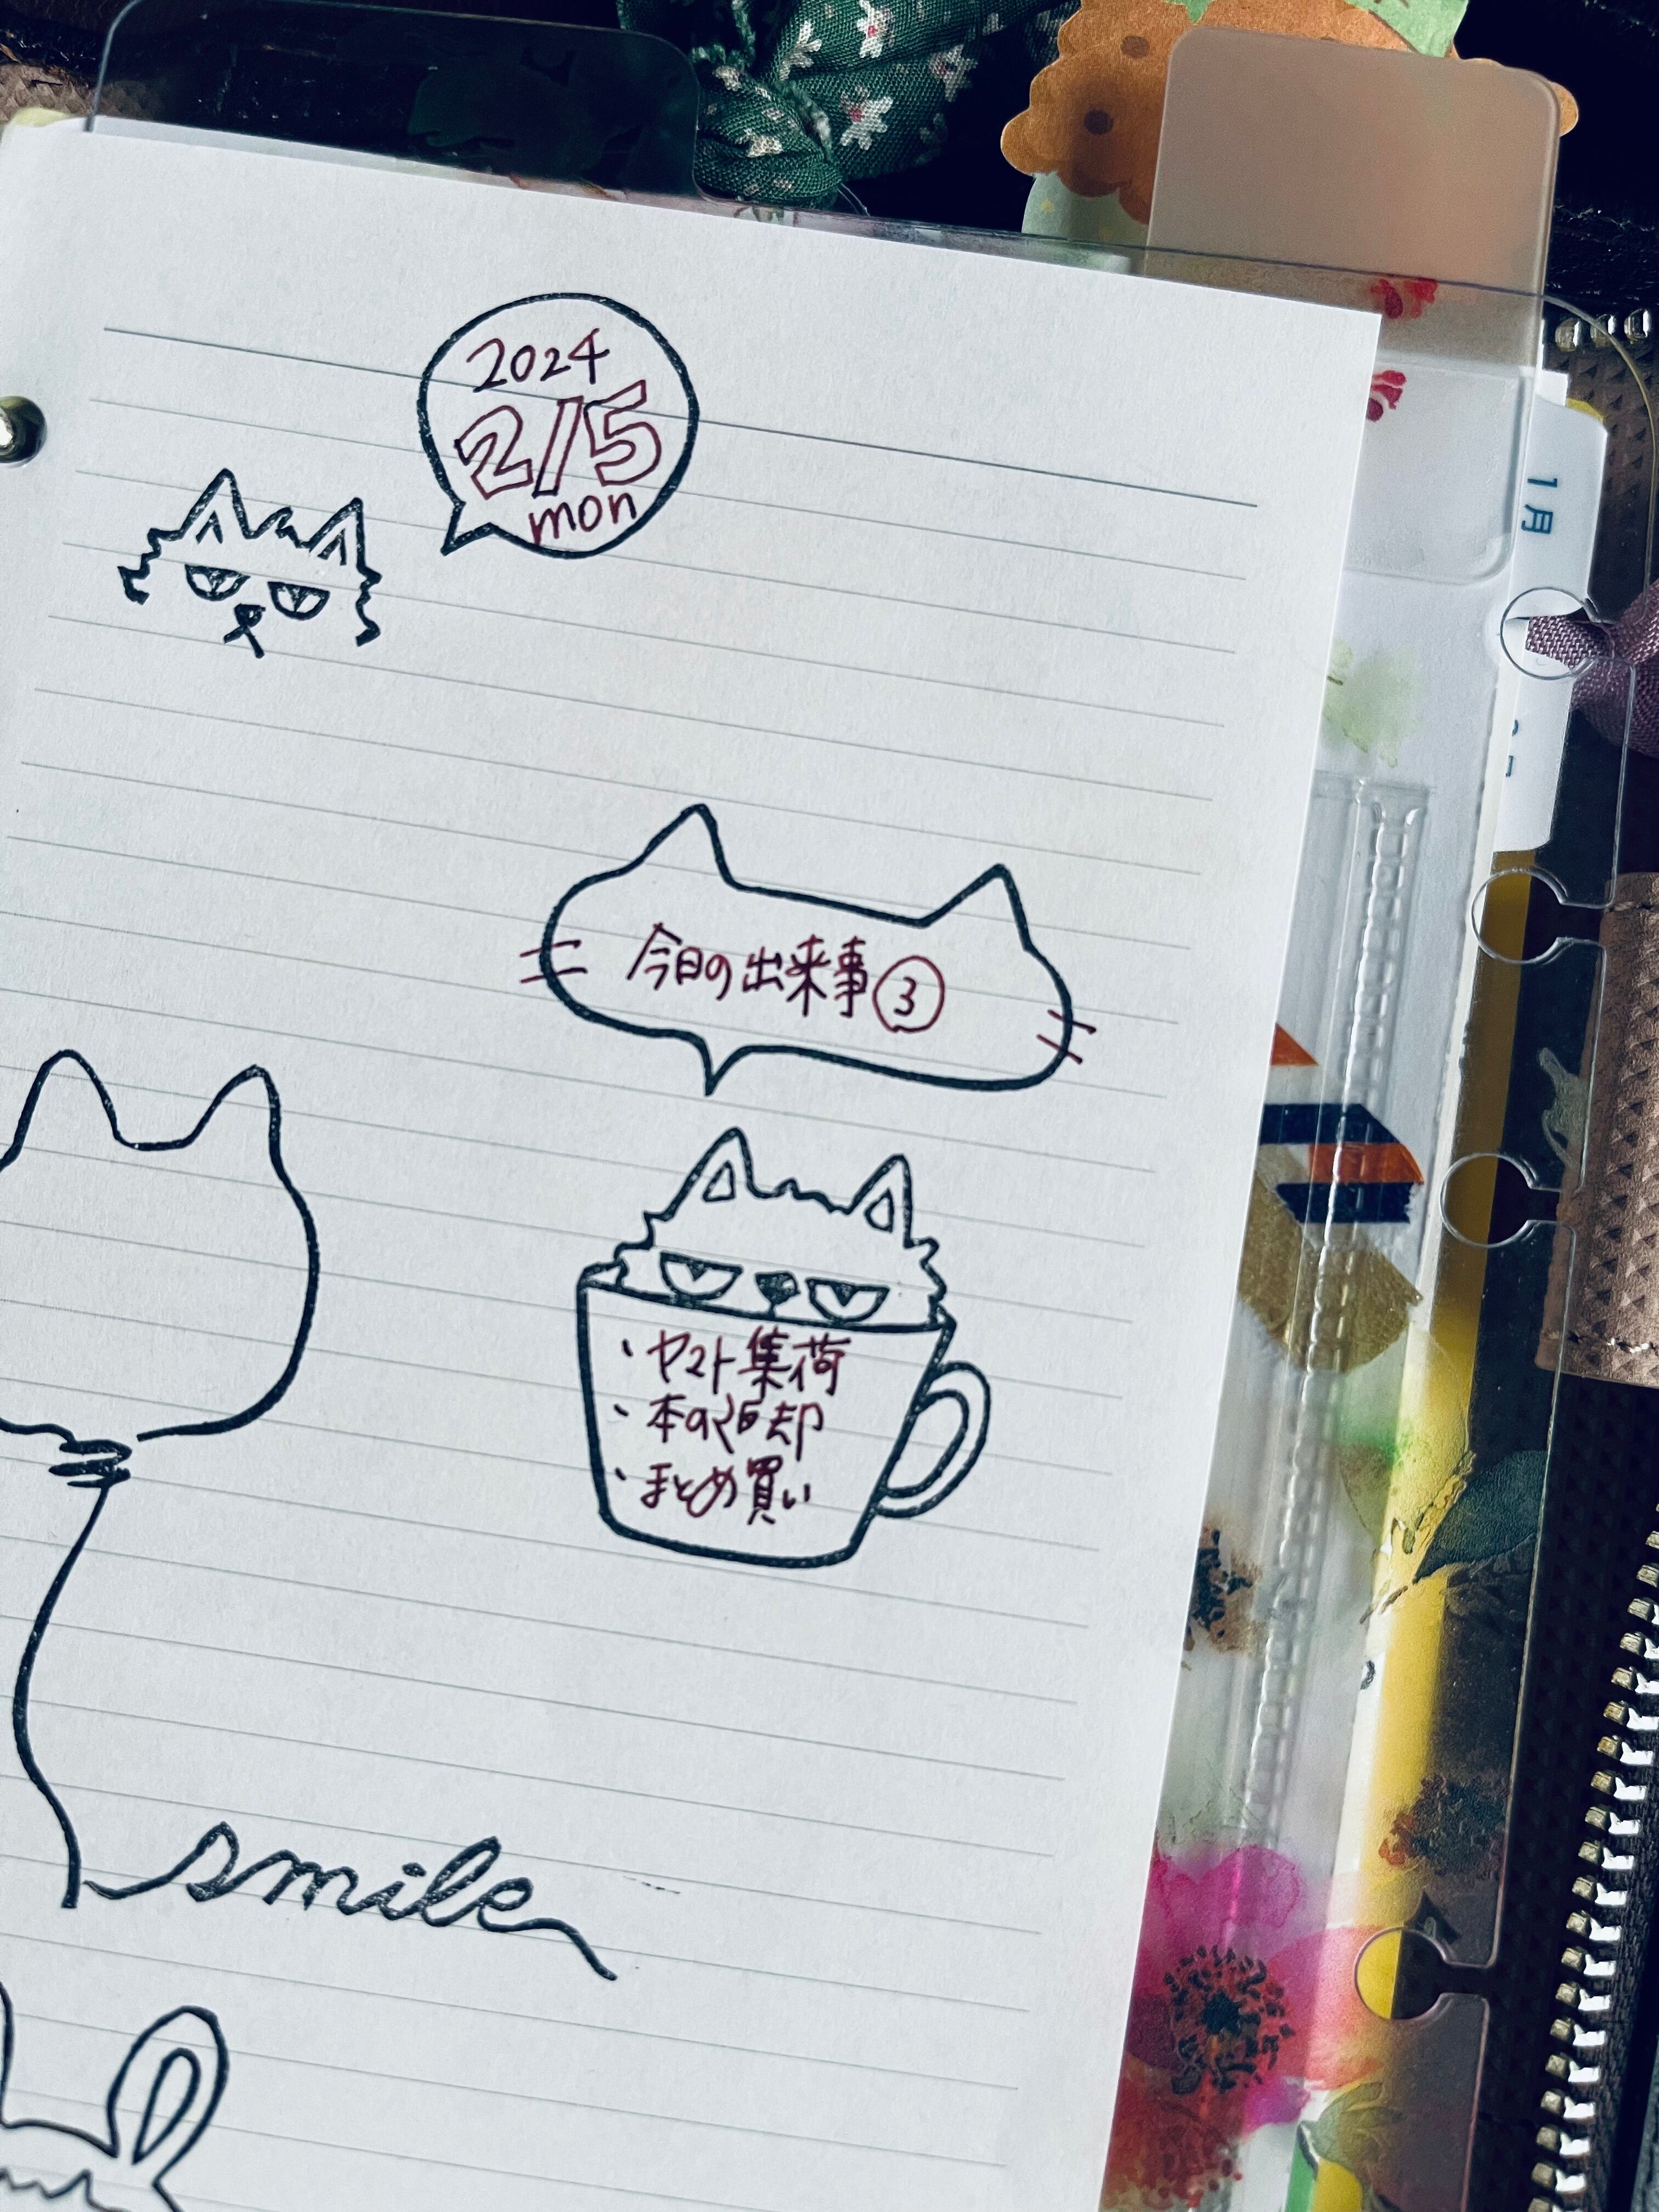 2024
2/5
mon
今日の出来事③
・ヤマト集荷
・本の返却
・まとめ買い
smile
1月